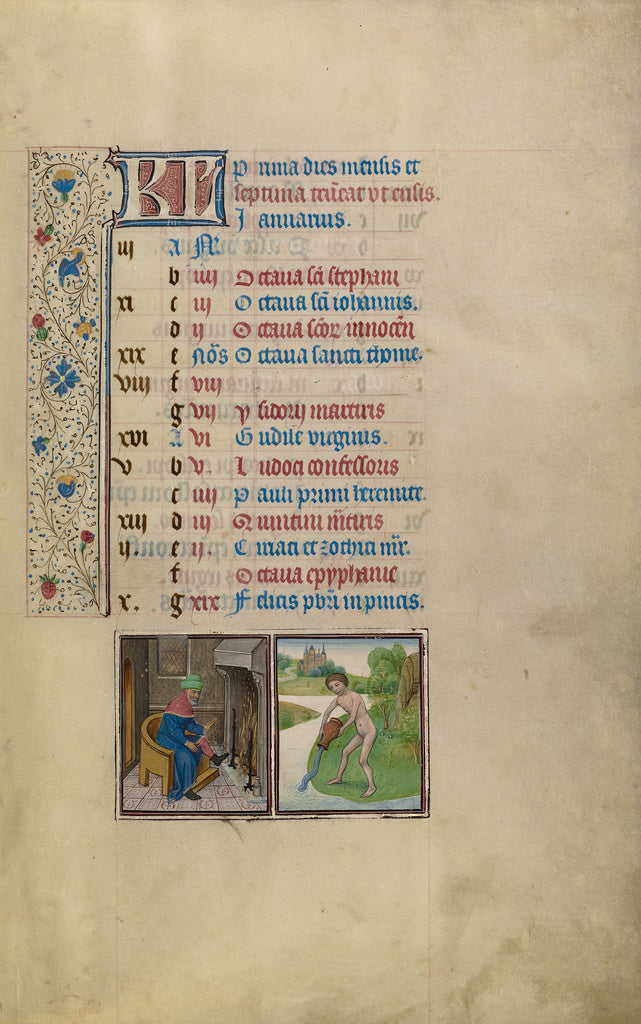 KL Prima dies mensis et
septima truncat ut ensis.
Januarius.
iii A N
b iiii Octaua sci stephani
xi c iii Octaua sci iohannis.
d ii Octaua scor innocen
xix e Nōs Octaua sancti thome.
viii f viii
g vii ysidorii martiris
xvi A vi Gudile virginis.
v b v Iudoci confessoris
c iiii Pauli primi heremite.
xiii d iii Quintini mtiris
ii. e ii. Ciriaci et zothici mr.
f Octaua epyphanie
x. g xix Felicis pbri in pincis.